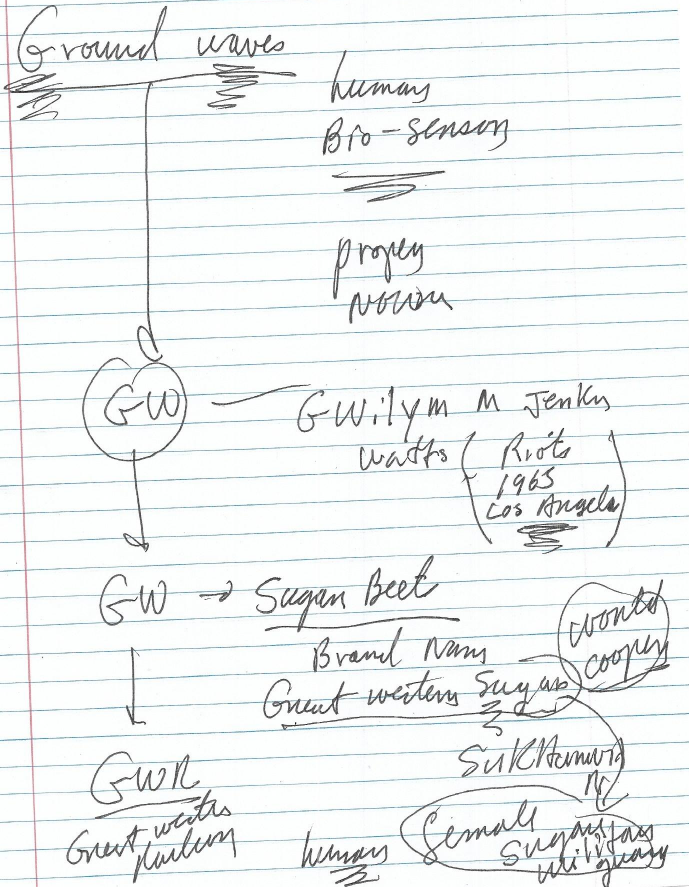 Ground waves
human
Bio-sensor
proper
Noun
GW
GWilym M Jenkins
Watts
Riots
1965
Los Angeles
GW → Sugar Beet
Brand Name
Great western Sugar
would
cooper
GWR
Great western
Railway
human
female
Sugar
military